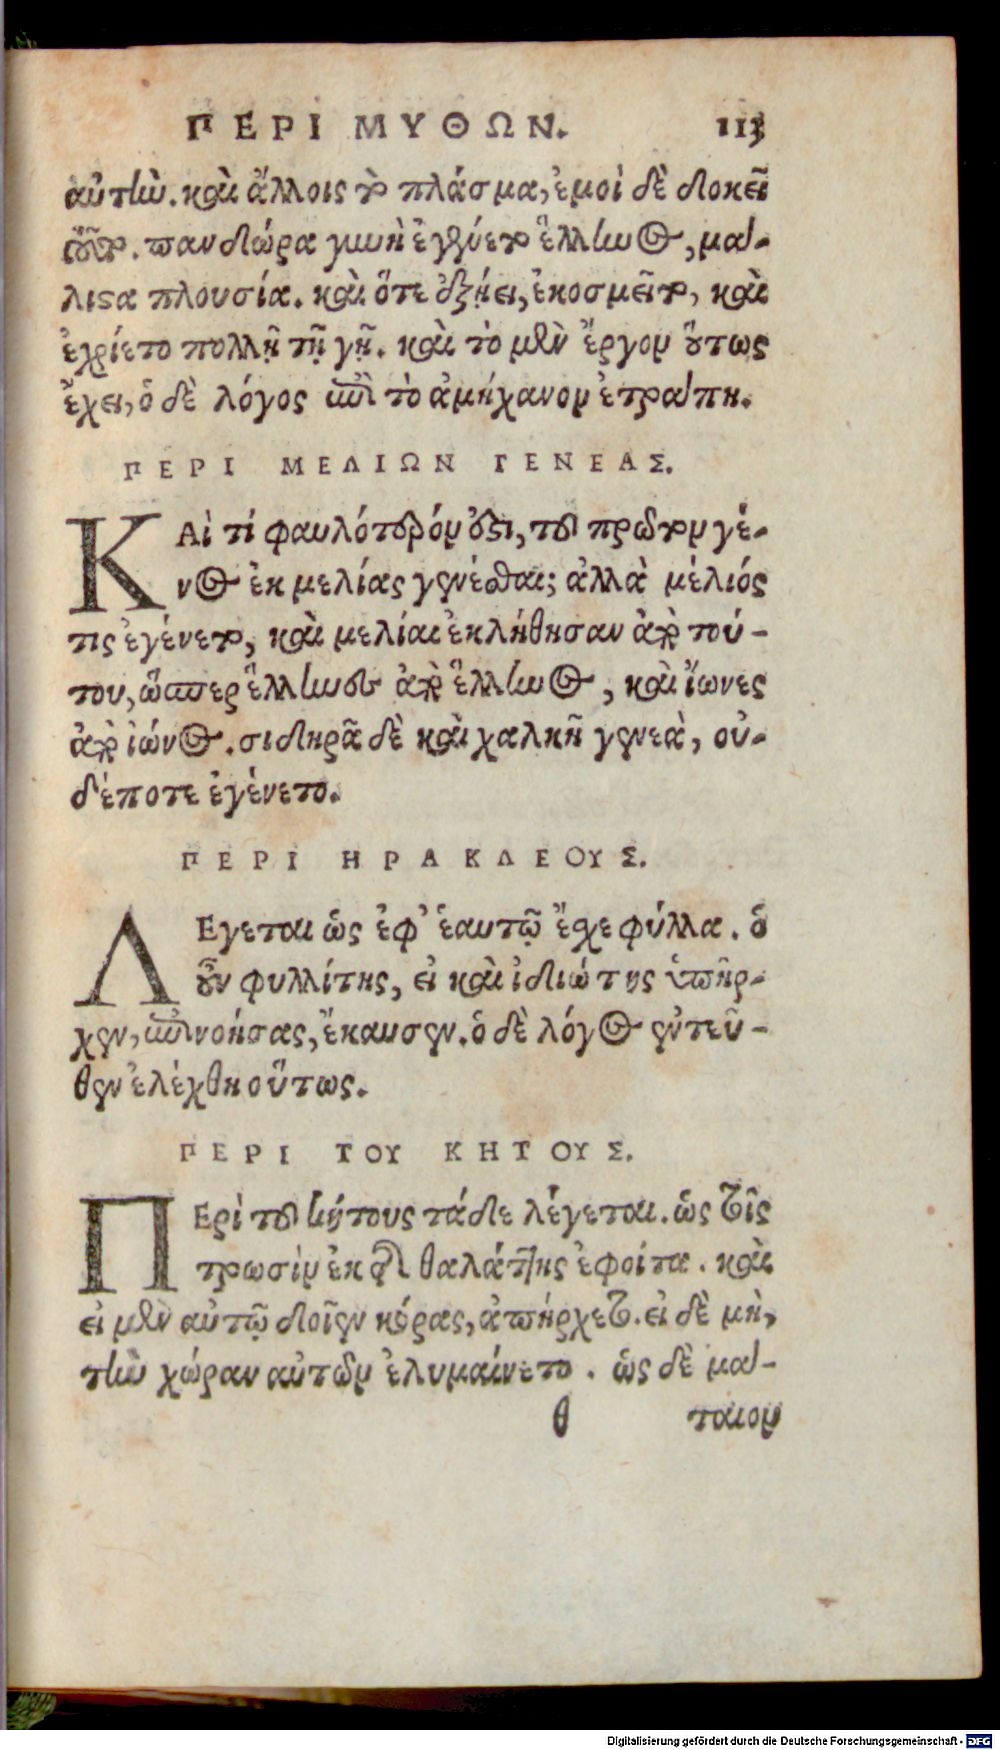 ΠΕΡΙ ΜΥΘΩΝ. 113
αὐτὴν. καὶ ἄλλοις τὸ πλάσμα, ἐμοὶ δὲ δοκεῖ
οὕτω. πανδώρα γυνὴ ἐγένετο ἕλληνος, μά-
λιστα πλουσία. καὶ ὅτε ἐξῄει, ἐκοσμεῖτο, καὶ
ἐχρίετο πολλῇ τῇ γῇ. καὶ τὸ μὲν ἔργον οὕτως
ἔχει, ὁ δὲ λόγος ἐπὶ τὸ ἀμήχανον ἐτράπη.
ΠΕΡΙ ΜΕΛΙΩΝ ΓΕΝΕΑΣ.
ΚΑὶ τί φαυλότερόν ἐστι, τοῦ πρῶτον γέ-
νος ἐκ μελίας γενέσθαι; ἀλλὰ μέλιός
τις ἐγένετο, καὶ μελίαι ἐκλήθησαν ἀπὸ τού-
του, ὥσπερ ἕλληνες ἀπὸ ἕλληνος, καὶ ἴωνες
ἀπὸ ἰώνος. σιδηρᾶ δὲ καὶ χαλκῆ γενεὰ, οὐ-
δέποτε ἐγένετο.
ΠΕΡΙ ΗΡΑΚΛΕΟΥΣ.
ΛΕγεται ὡς ἐφ' ἑαυτῷ ἔχε φύλλα. ὁ
οὖν φυλλίτης, εἰ καὶ ἰδιώτης ὑπῆρ-
χεν, ἐπινοήσας, ἔκαυσεν. ὁ δὲ λόγος ἐντεῦ-
θεν ἐλέχθη οὕτως.
ΠΕΡΙ ΤΟΥ ΚΗΤΟΥΣ.
ΠΕρὶ τοῦ κήτους τάδε λέγεται. ὡς τοῖς
τρωσὶν ἐκ τῆς θαλάττης ἐφοίτα. καὶ
εἰ μὲν αὐτῷ δοῖεν κόρας, ἀπήρχετο. εἰ δὲ μὴ,
τὴν χώραν αὐτῶν ἐλυμαίνετο. ὡς δὲ μά-
θ ταιον
Digitalisierung gefördert durch die Deutsche Forschungsgemeinschaft - DFG